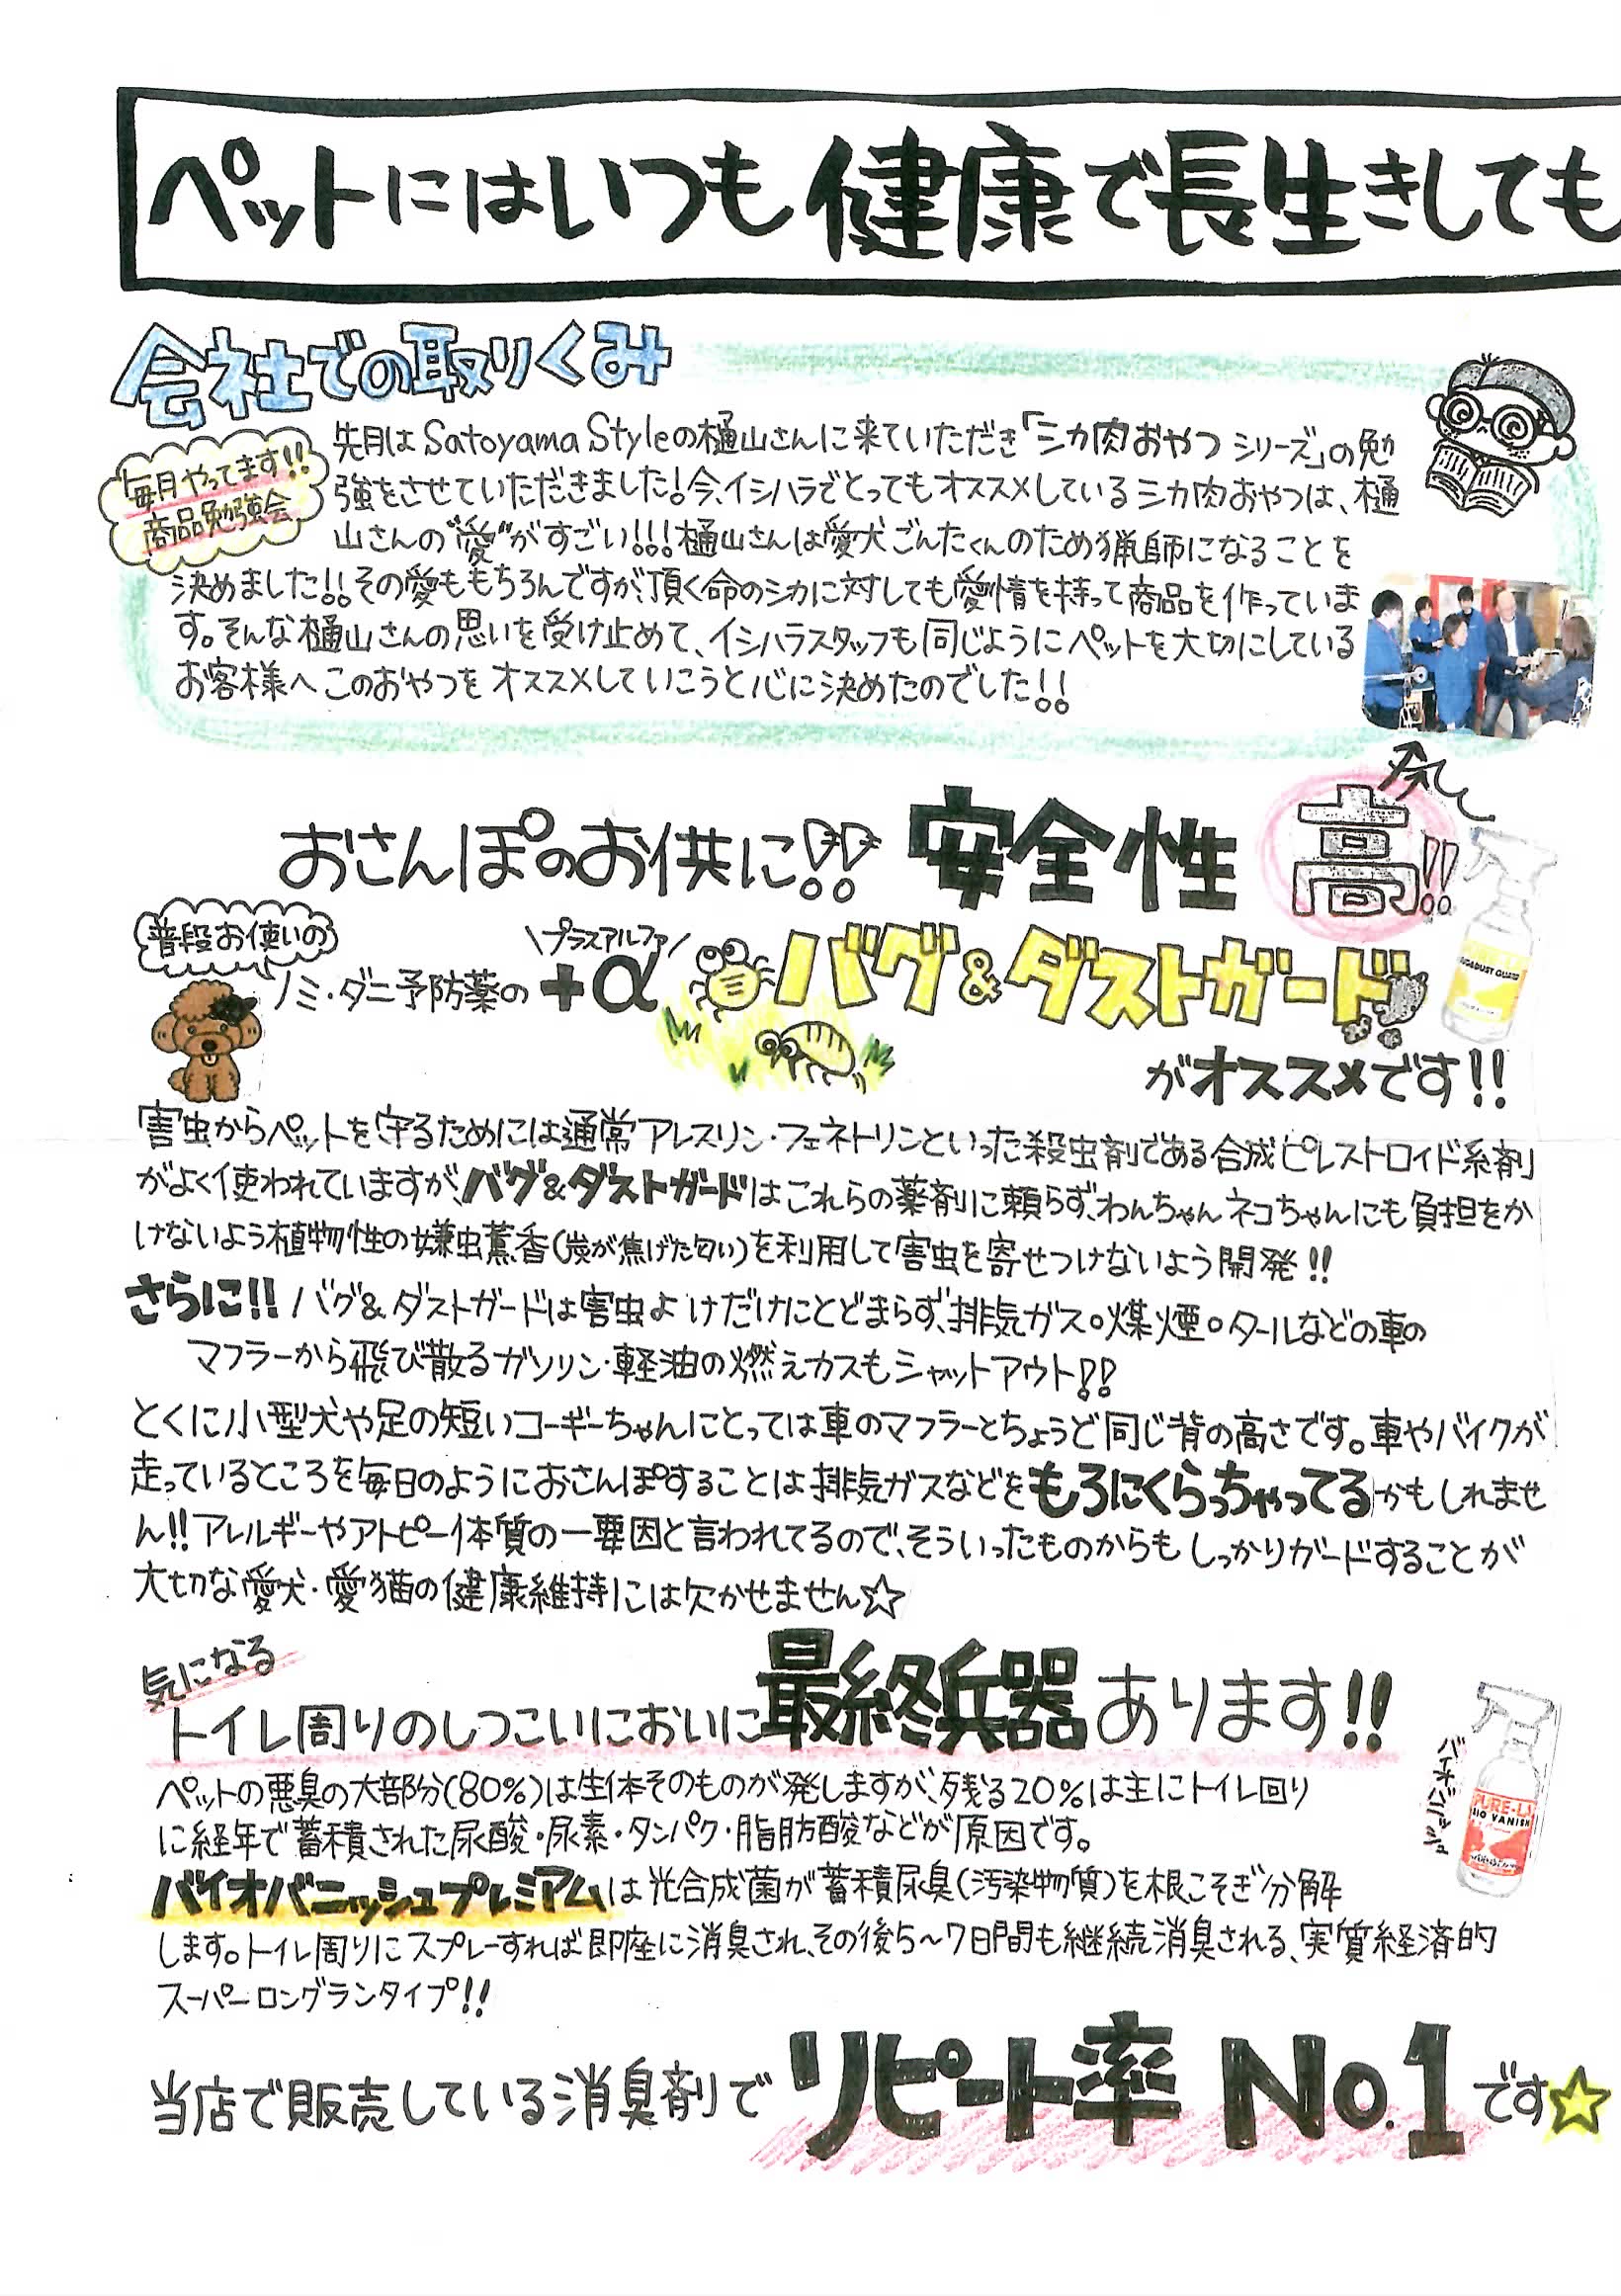 ペットにはいつも健康で長生きしても
会社での取りくみ
毎月やってます!!
商品勉強会
先月は Satoyama Styleの樋山さんに来ていただき「シカ肉おやつ シリーズ」の勉
強をさせていただきました!今、イシハラでとってもオススメしているシカ肉おやつは、樋
山さんの"愛"がすごい!!!樋山さんは愛犬ごんたくんのため猟師になることを
決めました!!その愛ももちろんですが、頂く命のシカに対しても愛情を持って商品を作っていま
す。そんな樋山さんの思いを受け止めて、イシハラスタッフも同じようにペットを大切にしている
お客様へこのおやつをオススメしていこうと心に決めたのでした!!
おさんぽのお供に!! 安全性 高!!
普段お使いの
ノミ・ダニ予防薬の
\プラスアルファ/
+α
バグ&ダストガード
BUG&DUST GUARD
がオススメです!!
害虫からペットを守るためには通常アレスリン・フェネトリンといった殺虫剤である合成ピレストロイド系剤
がよく使われていますが、バグ&ダストガードはこれらの薬剤に頼らず、わんちゃんネコちゃんにも負担をか
けないよう植物性の嫌虫薫香(炭が焦げた匂い)を利用して害虫を寄せつけないよう開発!!
さらに!! バグ&ダストガードは害虫よけだけにとどまらず、排気ガス。煤煙。タールなどの車の
マフラーから飛び散るガソリン・軽油の燃えカスもシャットアウト!!
とくに小型犬や足の短いコーギーちゃんにとっては車のマフラーとちょうど同じ背の高さです。車やバイクが
走っているところを毎日のようにおさんぽすることは排気ガスなどをもろにくらっちゃってるかもしれませ
ん!!アレルギーやアトピー体質の一要因と言われてるので、そういったものからもしっかりガードすることが
大切な愛犬・愛猫の健康維持には欠かせません☆
気になる
トイレ周りのしつこいにおいに最終兵器あります!!
ペットの悪臭の大部分(80%)は生体そのものが発しますが、残る20%は主にトイレ回り
に経年で蓄積された尿酸・尿素・タンパク・脂肪酸などが原因です。
バイオバニッシュプレミアムは光合成菌が蓄積尿臭(汚染物質)を根こそぎ分解
します。トイレ周りにスプレーすれば即座に消臭され、その後5~7日間も継続消臭される、実質経済的
スーパーロングランタイプ!!
バイオバニッシュ
PURE-LI
BIO VANISH
当店で販売している消臭剤で リピート率 No.1 です☆